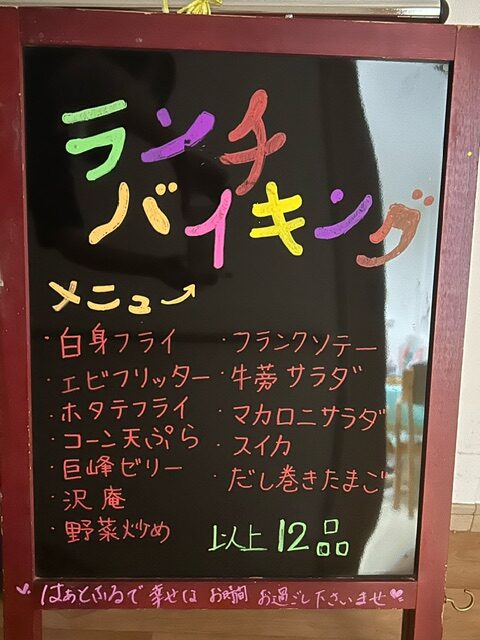 ランチ
バイキング
メニュー
・白身フライ
・エビフリッター
・ホタテフライ
・コーン天ぷら
・巨峰ゼリー
・沢庵
・野菜炒め
・フランクソテー
・牛蒡サラダ
・マカロニサラダ
・スイカ
・だし巻きたまご
以上12品
はぁとふるで幸せなお時間お過ごし下さいませ